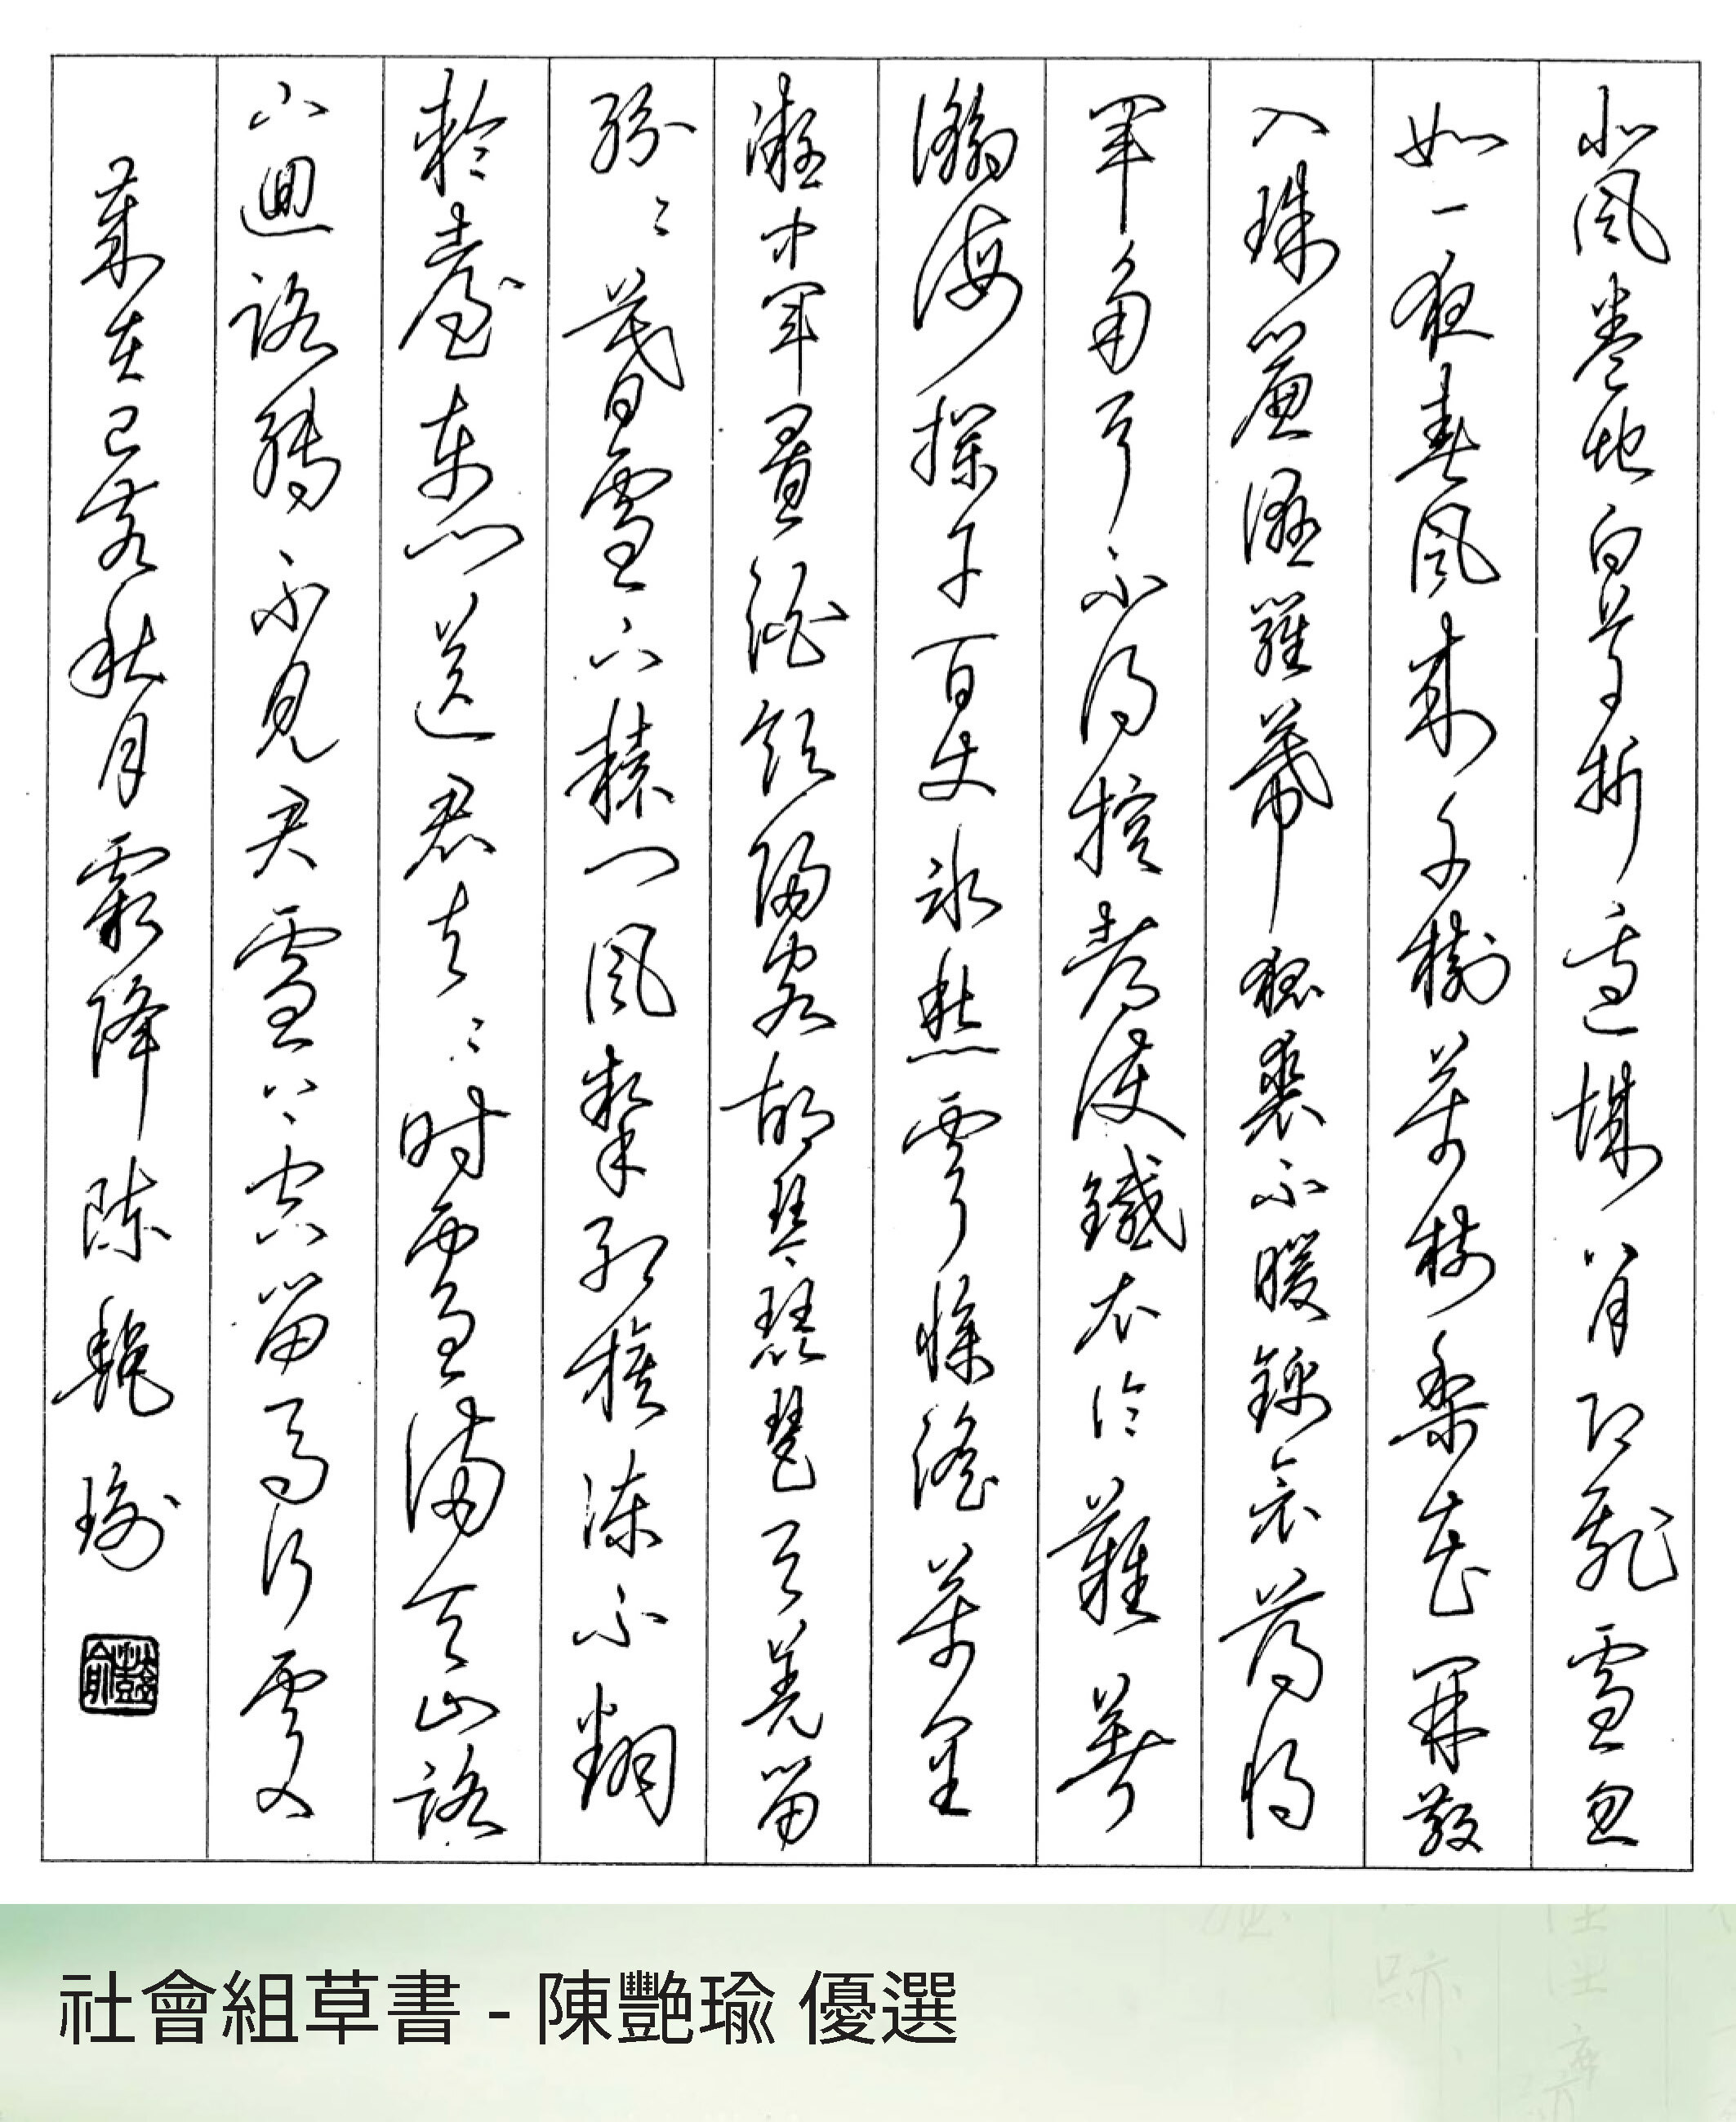 北風卷地白草折邊城八月即飛雪忽
如一夜春風來千樹萬樹梨花開散
入珠簾濕羅幕狐裘不暖錦衾薄將
軍角弓不得控都護鐵衣冷難著
瀚海欄干百丈冰愁雲慘澹萬里
凝中軍置酒飲歸客胡琴琵琶與羌笛
紛々暮雪下轅門風掣紅旗凍不翻
輪臺東門送君去々時雪滿天山路
山迴路轉不見君雪上空留馬行處
歲在己亥秋月霜降陳艷瑜
社會組草書 - 陳艷瑜 優選